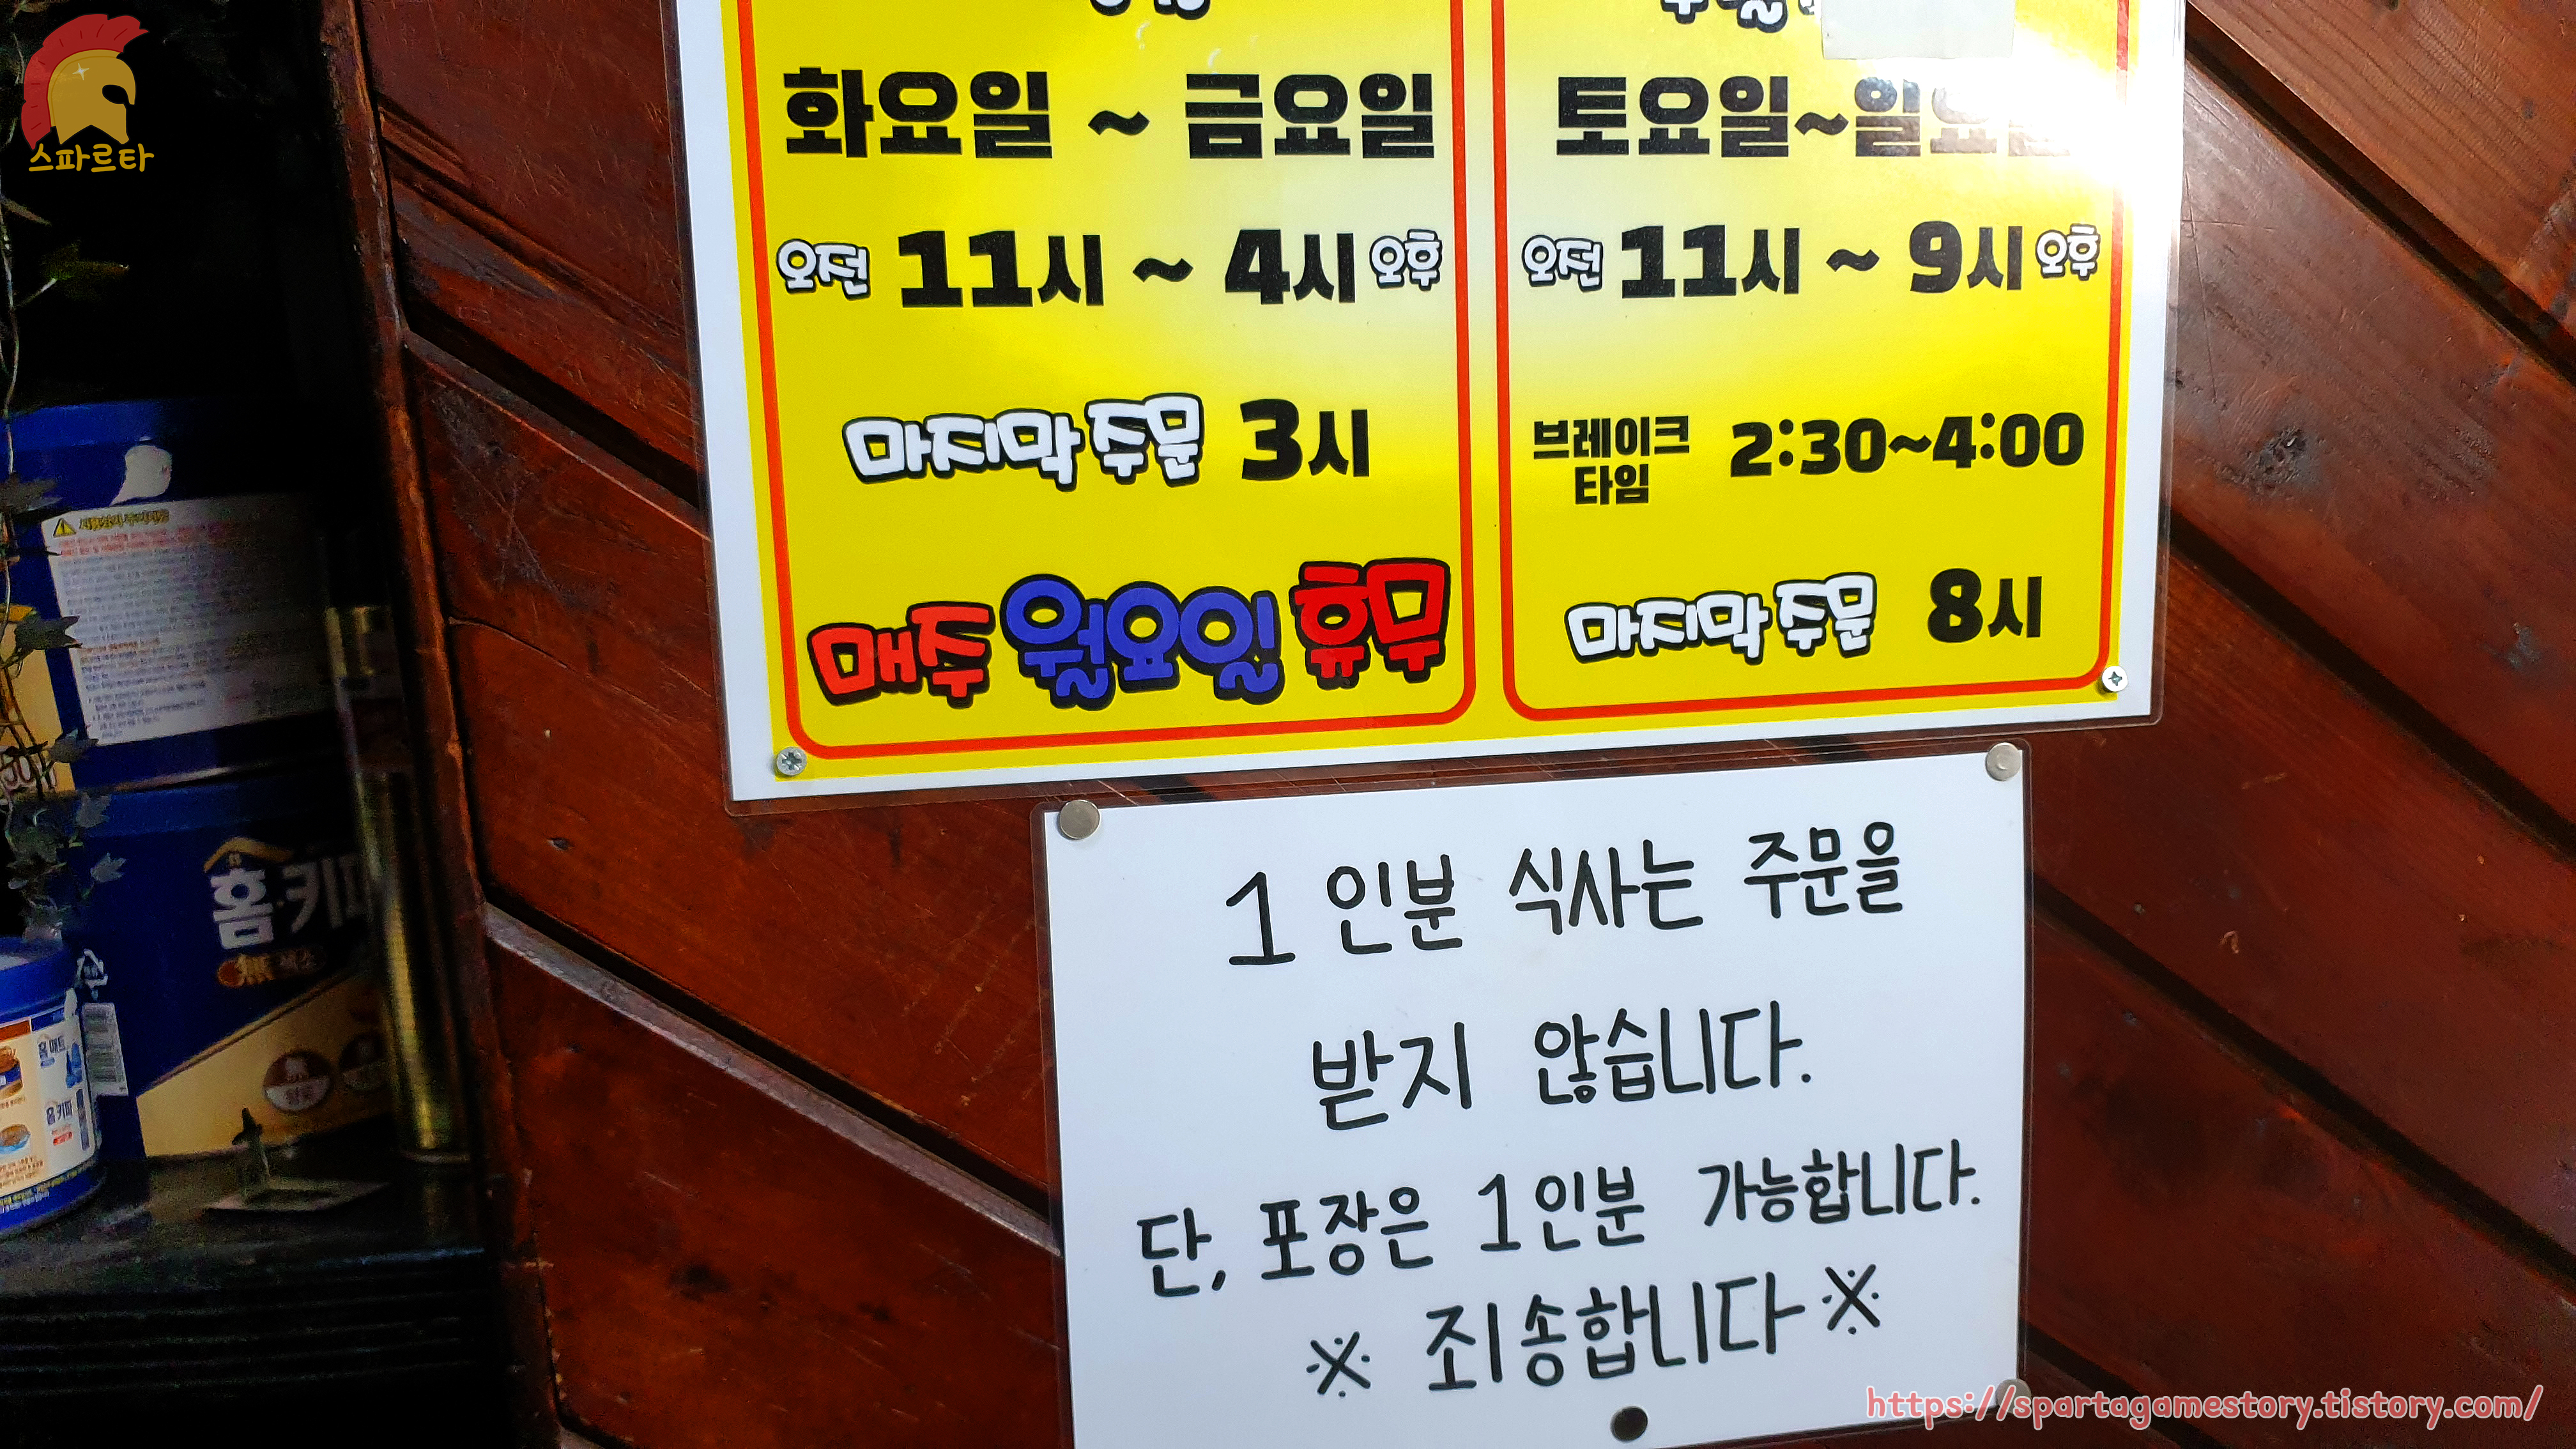 스파르타
화요일 ~ 금요일
오전 11시 ~ 4시 오후
마지막 주문 3시
매주 월요일 휴무
토요일~일요일
오전 11시 ~ 9시 오후
브레이크 타임 2:30~4:00
마지막 주문 8시
1 인분 식사는 주문을
받지 않습니다.
단, 포장은 1인분 가능합니다.
※ 죄송합니다 ※
홈·키파
無
홈 매트
홈 키파
https://spartagamestory.tistory.com/